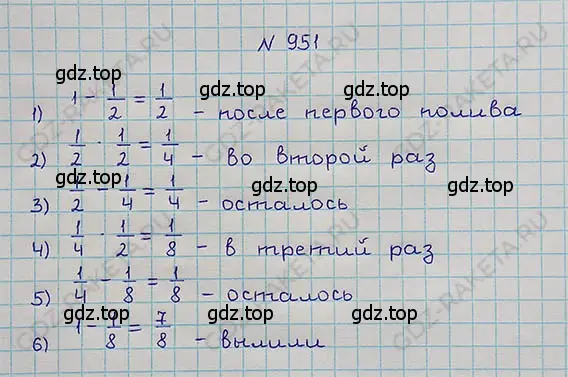 N 951
gdz.top gdz.top
1) 1 - 1/2 = 1/2 - после первого полива
2) 1/2 · 1/2 = 1/4 - во второй раз
gdz.top gdz.top gdz.top
3) 1/2 - 1/4 = 1/4 - осталось
4) 1/4 · 1/2 = 1/8 - в третий раз
5) 1/4 - 1/8 = 1/8 - осталось
gdz.top gdz.top gdz.top
6) 1 - 1/8 = 7/8 - вылили
GDZ-RAKETA.RU